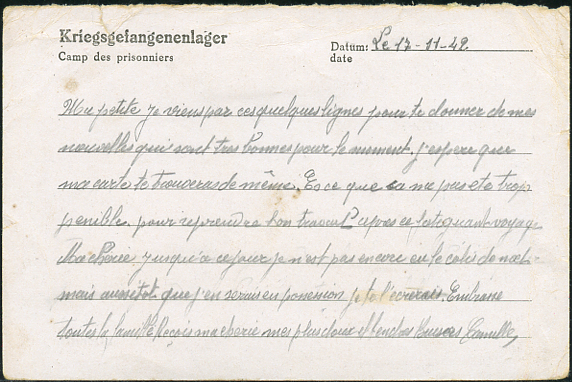 Kriegsgefangenenlager
Camp des prisonniers
Datum: Le 17-11-42
date
Ma petite je viens par ces quelques lignes pour te donner de mes
nouvelles qui sont tres bonnes pour le moment. j'espere que
ma carte te trouveras de même. Es ce que sa ma pas ete trop
penible pour reprendre ton travail apres ce fatiguant voyage
Ma cherie jusqu'a ce jour je n'est pas encore eu le colis de noel
mais aussitot que j'en serais en possession je te l'écrirais. Embrasse
toutes la famille Reçois ma cherie mes plus doux tendres Baisers Camille,